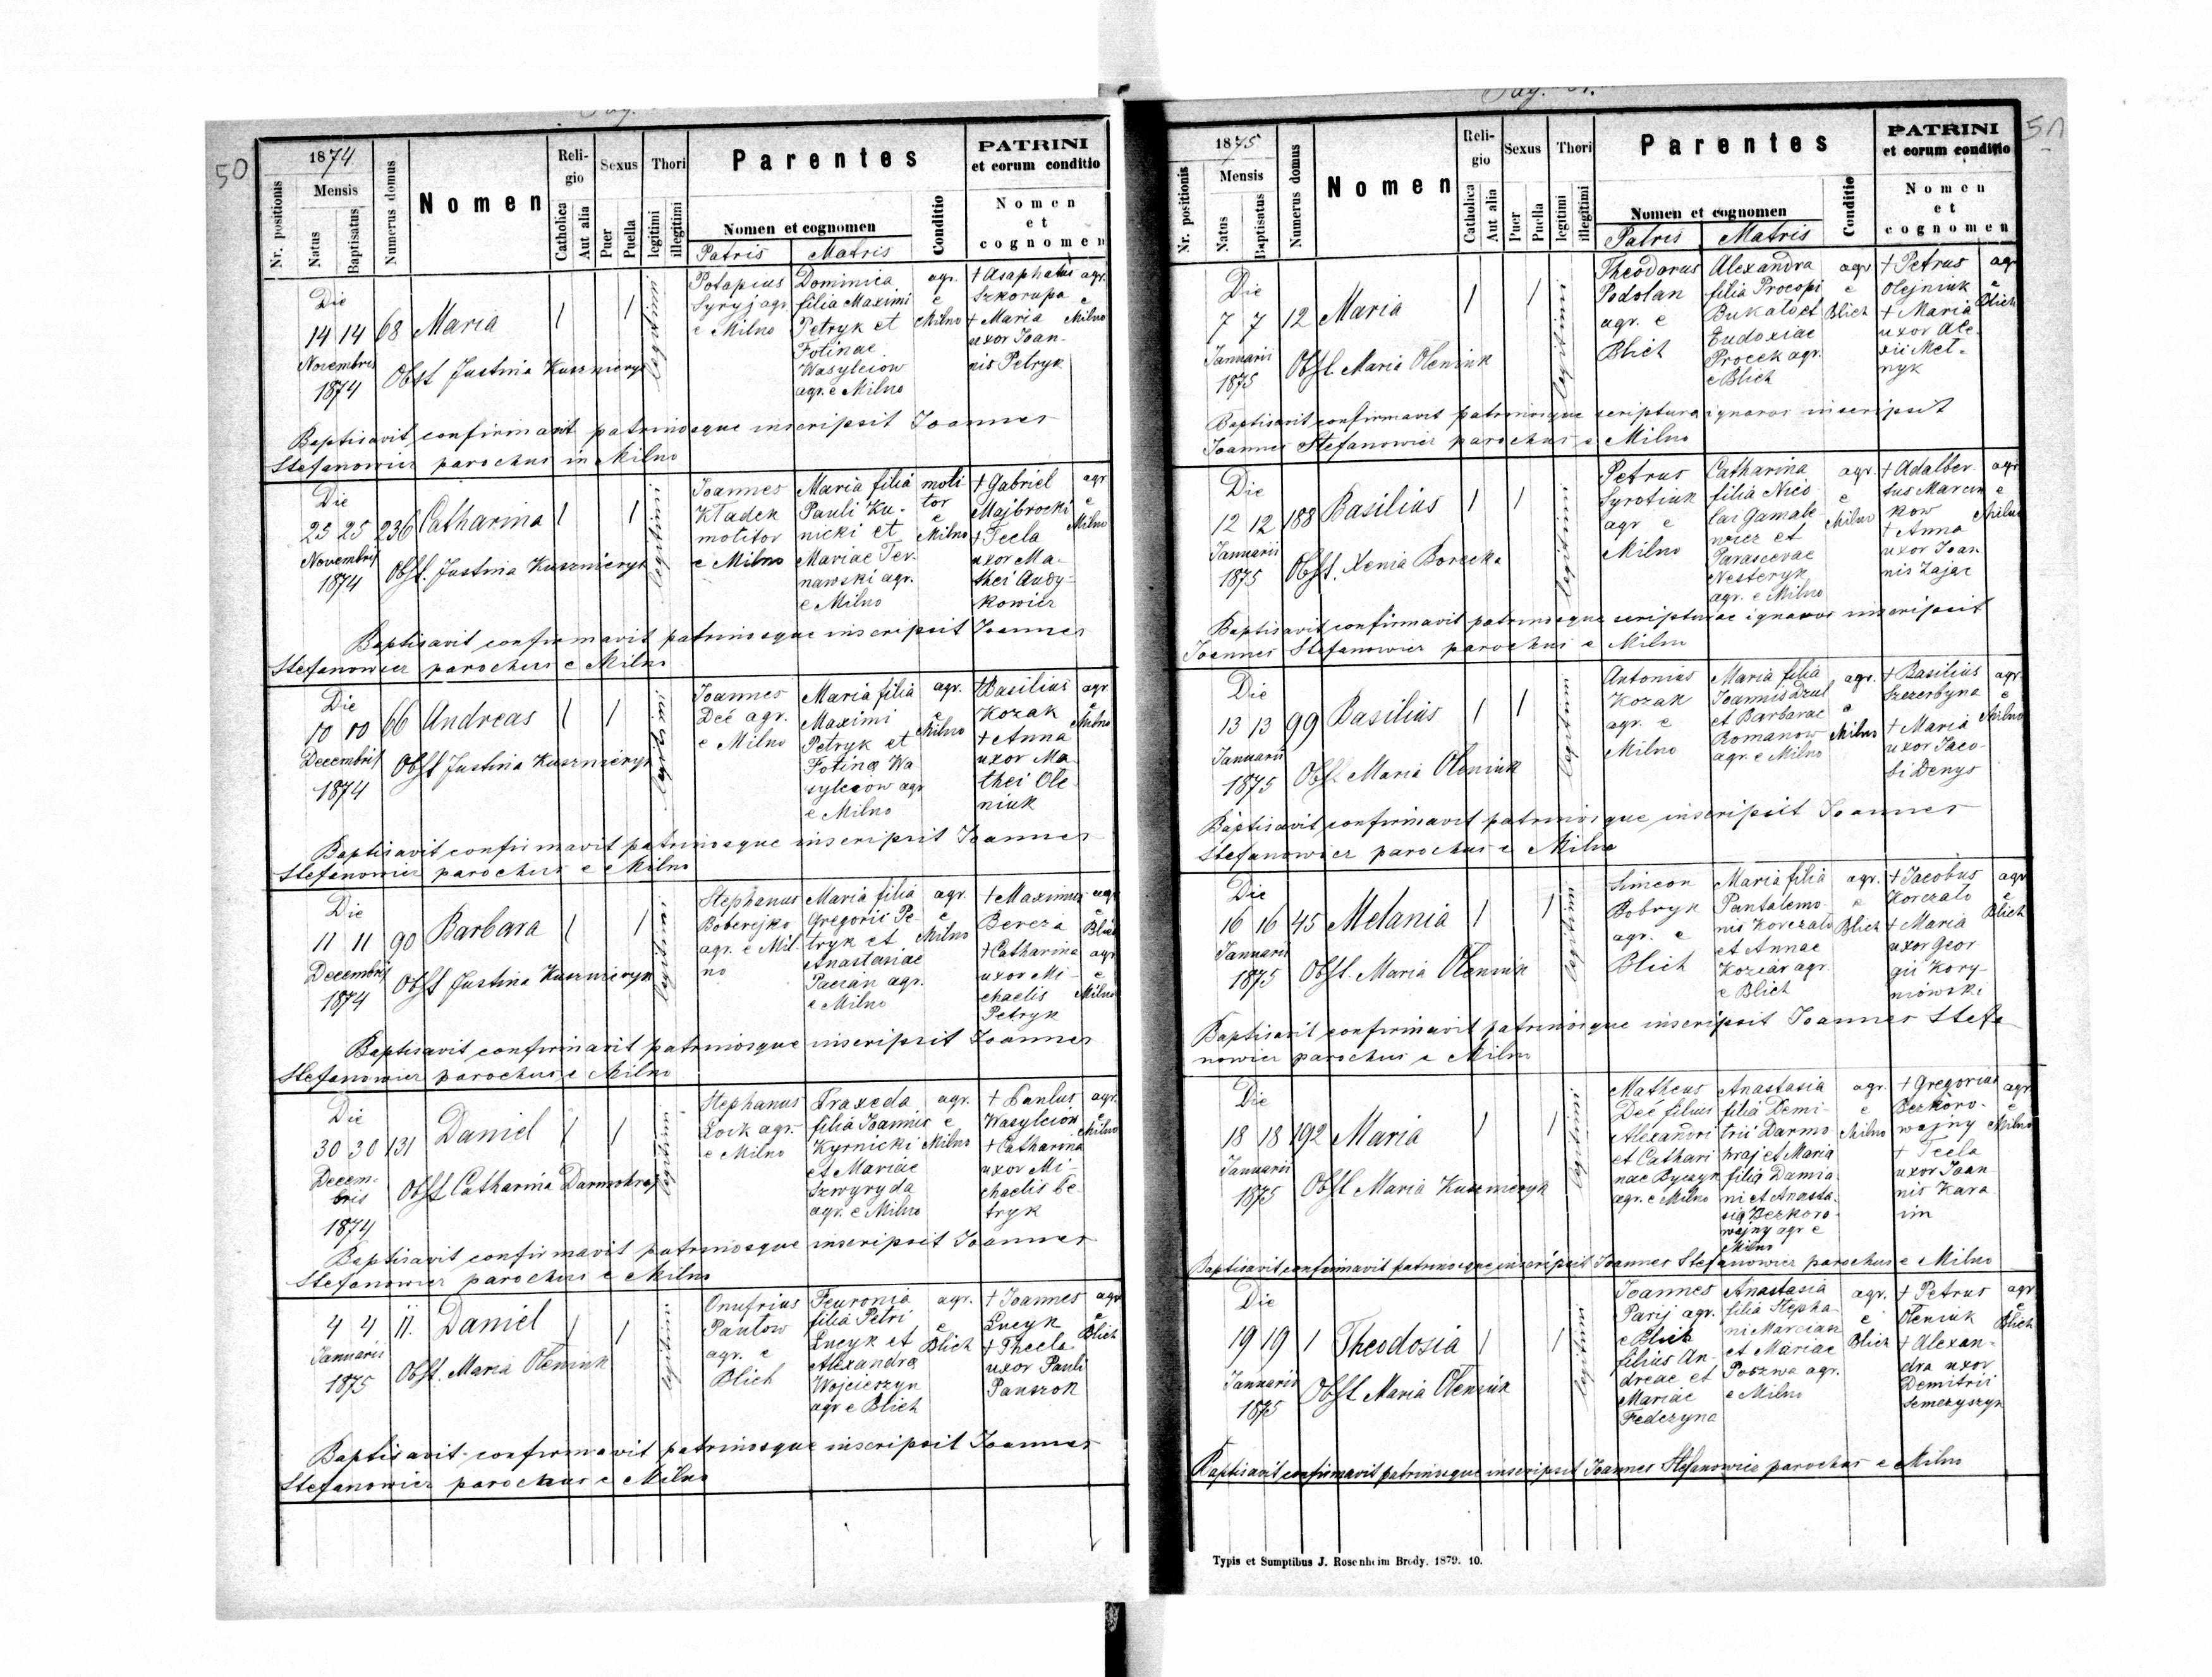 50
1874
Nr. positionis
Mensis
Natus
Baptisatus
Numerus domus
Nomen
Religio
Catholica
Aut alia
Sexus
Puer
Puella
Thori
legitimi
illegitimi
Parentes
Nomen et cognomen
Patris
Matris
Conditio
PATRINI
et eorum conditio
Nomen
et
cognomen
Die
14 14 68 Maria
Novembris
1874
Obst Justina Kuszmeryk
legitimi
Potapius
Syryj agr
e Milno
Dominica
filia Maximi
Petryk et
Fotinae
Wasyleiow
agr. e Milno
agr.
e
Milno
† Asaphatus agr.
Szkorupa e
† Maria Milno
uxor Joan-
nis Petryk
Baptisavit confirmavit patrinosque inscripsit Joannes
Stefanowicz parochus in Milno
Die
25 25 236 Catharina
Novembris
1874
Obst. Justina Kuszmeryk
legitimi
Joannes
Kładek
molitor
e Milno
Maria filia
Pauli Ku-
nicki et
Mariae Ter-
nawski agr.
e Milno
moli
tor
e
Milno
† Gabriel agr
Majbrocki e
† Tecla Milno
uxor Ma-
thei Audy-
kowicz
Baptisavit confirmavit patrinosque inscripsit Joannes
Stefanowicz parochus e Milno
Die
10 10 66 Andreas
Decembris
1874
Obst Justina Kuszmeryk
legitimi
Joannes
Deć agr.
e Milno
Maria filia
Maximi
Petryk et
Fotina Wa
syleiow agr
e Milno
agr.
e
Milno
† Basilius agr
Kozak e
† Anna Milno
uxor Ma
thei Ole
niuk
Baptisavit confirmavit patrinosque inscripsit Joannes
Stefanowicz parochus e Milno
Die
11 11 90 Barbara
Decembris
1874
Obst Justina Kuszmeryk
legitimi
Stephanus
Boberejko
agr. e Mil-
no
Maria filia
Gregorii Pe-
tryk et
Anastasiae
Pacian agr.
e Milno
agr
e
Milno
† Maximus agr
Bereza Blich
† Catharina agr
uxor Mi- e
chaelis Milno
Petryk
Baptisavit confirmavit patrinosque inscripsit Joannes
Stefanowicz parochus e Milno
Die
30 30 131 Daniel
Decem-
bris
1874
Obst Catharina Darmohraj
legitimi
Stephanus
Łock agr.
e Milno
Praxeda
filia Joannis
Kyrnicki
et Mariae
Szwyryda
agr. e Milno
agr.
e
Milno
† Paulus agr.
Wasyleiow e
† Catharina Milno
uxor Mi-
chaelis Pe-
tryk
Baptisavit confirmavit patrinosque inscripsit Joannes
Stefanowicz parochus e Milno
4 4 11. Daniel
Januarii
1875
Obst. Maria Oleniuk
legitimi
Onufrius
Pawłow
agr. e
Blich
Feuronia
filia Petri
Łucyk et
Alexandra
Wojcieszyn
agr e Blich
agr.
e
Blich
† Joannes agr
Łucyk e
† Thecla Blich
uxor Pauli
Panszok
Baptisavit confirmavit patrinosque inscripsit Joannes
Stefanowicz parochus e Milno
51
1875
Nr. positionis
Mensis
Natus
Baptisatus
Numerus domus
Nomen
Religio
Catholica
Aut alia
Sexus
Puer
Puella
Thori
legitimi
illegitimi
Parentes
Nomen et cognomen
Patris
Matris
Conditio
PATRINI
et eorum conditio
Nomen
et
cognomen
Die
7 7 12 Maria
Januarii
1875
Obst. Maria Oleniuk
legitimi
Theodorus
Podolan
agr. e
Blich
Alexandra
filia Procopi
Bukało et
Eudoxiae
Procek agr.
e Blich
agr
e
Blich
† Petrus agr
Olejniuk e
† Maria Blich
uxor Ale-
xii Mel-
nyk
Baptisavit confirmavit patrinosque scriptura ignaros inscripsit
Joannes Stefanowicz parochus e Milno
Die
12 12 188 Basilius
Januarii
1875
Obst. Xenia Borecka
legitimi
Petrus
Syrotiuk
agr e
Milno
Catharina
filia Nico
lai Gamale-
wicz et
Parascevae
Nesteryk
agr. e Milno
agr.
e
Milno
† Adalber- agr
tus Marcin e
kow Milno
† Anna
uxor Joan
nis Zajac
Baptisavit confirmavit patrinosque scripturae ignaros inscripsit
Joannes Stefanowicz parochus e Milno
Die
13 13 99 Basilius
Januarii
1875
Obst. Maria Oleniuk
legitimi
Antonius
Kozak
agr. e
Milno
Maria filia
Joannis Dzul
et Barbarae
Romanow
agr. e Milno
agr.
e
Milno
† Basilius agr
Szczerbyna e
† Maria Milno
uxor Jaco-
bi Denys
Baptisavit confirmavit patrinosque inscripsit Joannes
Stefanowicz parochus e Milno
Die
16 16 45 Melania
Januarii
1875
Obst. Maria Oleniuk
legitimi
Simeon
Bobryk
agr. e
Blich
Maria filia
Pantalemo-
nis Korczalo
et Annae
Koziar agr
e Blich
agr.
e
Blich
† Jacobus agr
Korczalo e
† Maria Blich
uxor Geor
gii Kory-
niowski
Baptisavit confirmavit patrinosque inscripsit Joannes Stefa
nowicz parochus e Milno
Die
18 18 192 Maria
Januarii
1875
Obst Maria Kuszmeryk
legitimi
Matheus
Deć filius
Alexandri
et Cathari
nae Byczyk
agr. e Milno
Anastasia
filia Demi-
trii Darmo
hraj et Maria
filia Damia
ni et Anasta-
sia Bezkoro
wajny agr e
Milno
agr.
e
Milno
† Gregorius agr
Bezkoro- e
wajny Milno
† Tecla
uxor Joan
nis Kara
im
Baptisavit confirmavit patrinosque inscripsit Joannes Stefanowicz parochus e Milno
Die
19 19 1 Theodosia
Januarii
1875
Obst Maria Oleniuk
legitimi
Joannes
Parij agr.
e Blich
filius An-
dreae et
Mariae
Fedczyna
Anastasia
filia Stepha-
ni Marcian
et Mariae
Poszwa agr.
e Milno
agr.
e
Blich
† Petrus agr
Oleniuk e
† Alexan- Blich
dra uxor
Demitrii
Semczyszyn
Baptisavit confirmavit patrinosque inscripsit Joannes Stefanowicz parochus e Milno
Typis et Sumptibus J. Rosenheim Brody. 1879. 10.